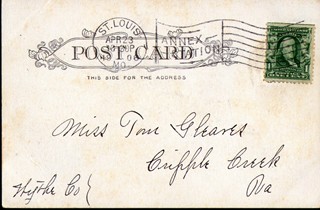 ST. LOUIS
APR 23
MO.
ANNEX
STATION
POST CARD
THIS SIDE FOR THE ADDRESS
Miss Tom Gleaves
Cripple Creek
Wythe Co
Va